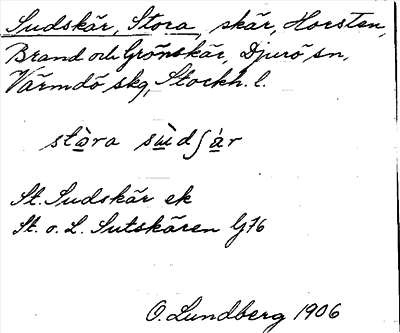 Sudskär, Stora, skär, Horsten,
Brand och Grönskär, Djurö sn,
Värmdö skg, Stockh. l.
St. Sudskär ek
St. o. L. Sutskären G76
O. Lundberg 1906